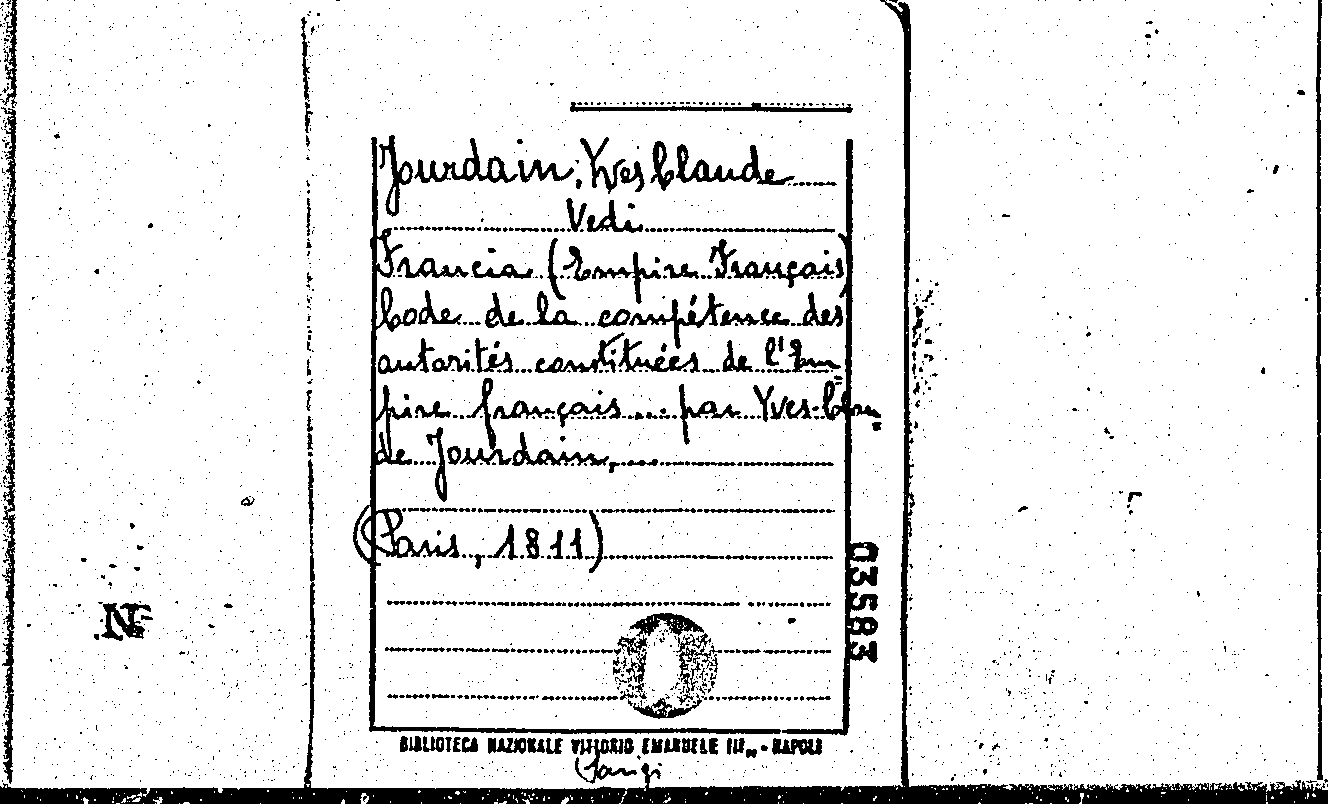 Jourdain, Yves Claude
Vedi
Francia (Empire Français)
Code de la compétence des
autorités constituées de l'Em
pire français... par Yves-Clau=
de Jourdain,...
(Paris, 1811)
03583
N
BIBLIOTECA NAZIONALE VITTORIO EMANUELE III" - NAPOLI
Parigi